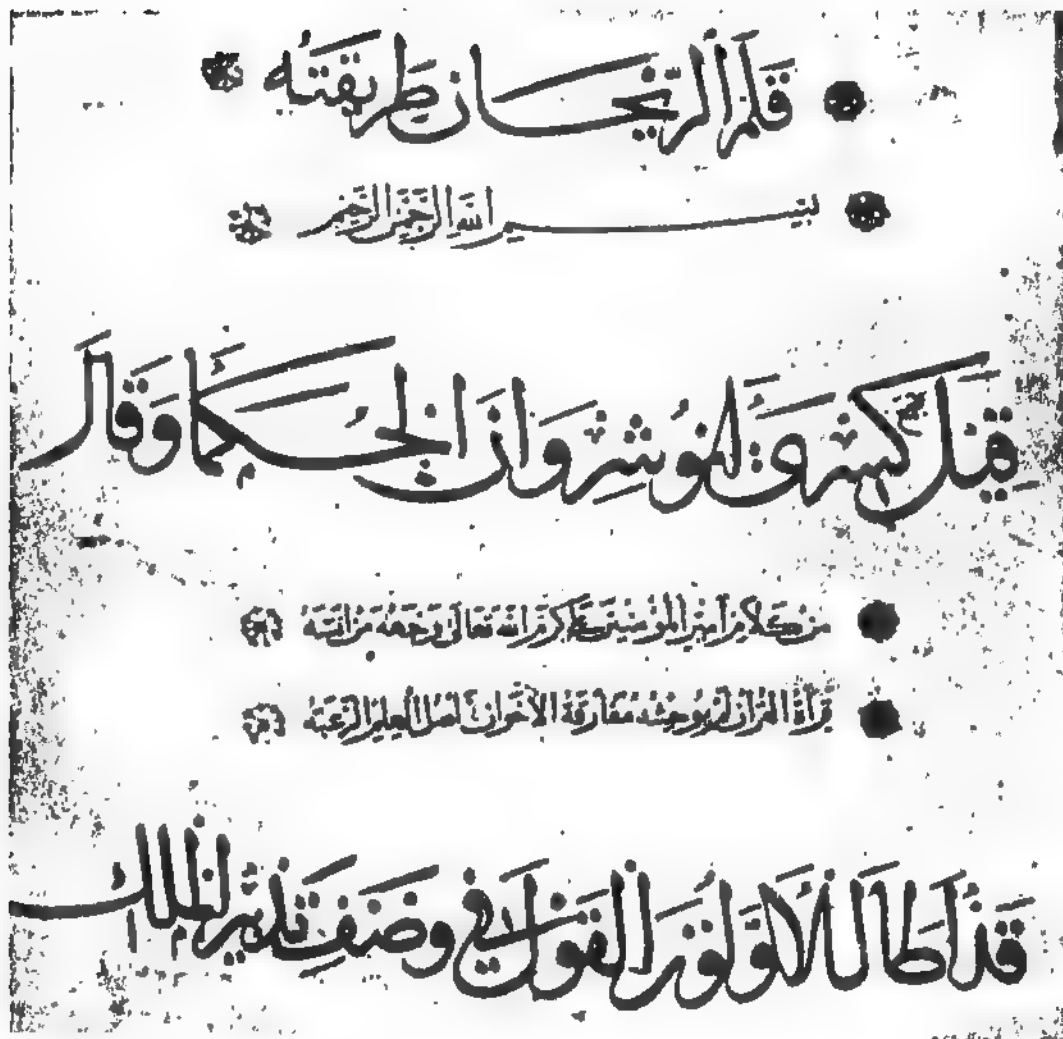 قلم الريحان طريقته
بسم الله الرحمن الرحيم
قيل كسرى انوشروان الحكما وقال
من كلام امير المؤمنين علي كرم الله تعالى وجهه من انسته
قرأة القران لم يوحشه مفارقة الاخوان اهل العلم الرغبة
قد اطال الاولون القول في وصف تدبير الملك